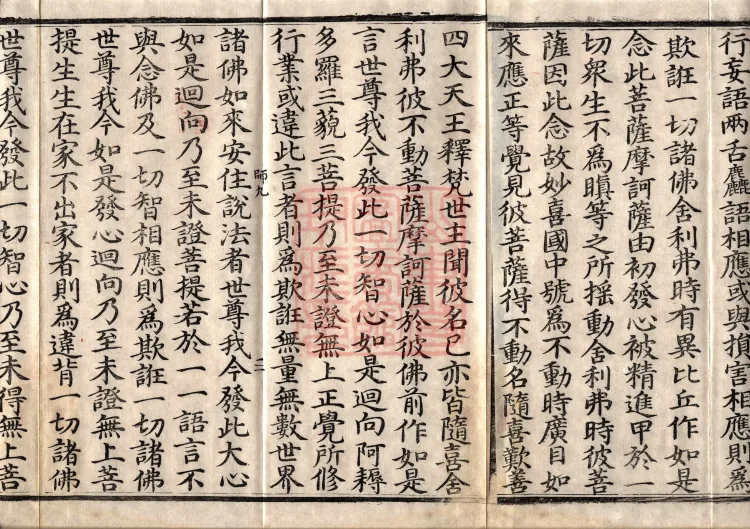 行妄語兩舌麤語相應或與損害相應則爲
欺誑一切諸佛舍利弗時有異比丘作如是
念此菩薩摩訶薩由初發心被精進甲於一
切衆生不爲瞋等之所揺動舍利弗時彼菩
薩因此念故妙喜國中號爲不動時廣目如
來應正等覺見彼菩薩得不動名隨喜歎善
四大天王釋梵世主聞彼名已亦皆隨喜舍
利弗彼不動菩薩摩訶薩於彼佛前作如是
言世尊我今發此一切智心如是迴向阿耨
多羅三藐三菩提乃至未證無上正覺所修
行業或違此言者則爲欺誑無量無數世界
師九 三
諸佛如來安住說法者世尊我今發此大心
如是迴向乃至未證菩提若於一一語言不
與念佛及一切智相應則爲欺誑一切諸佛
世尊我今如是發心迴向乃至未證無上菩
提生生在家不出家者則爲違背一切諸佛
世尊我今發此一切智心乃至未得無上菩